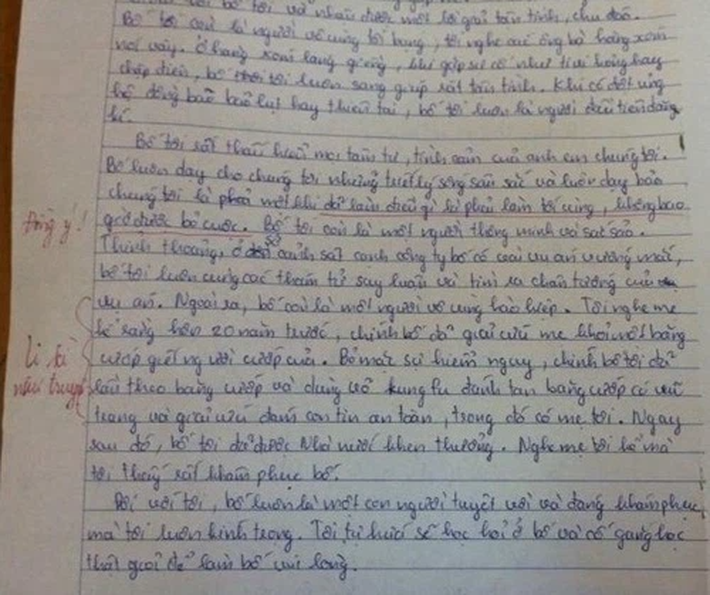 bố tôi và nhận được một lời giải tận tình, chu đáo.
Bố tôi còn là người vô cùng tốt bụng, tôi nghe các ông bà hàng xóm
nói vậy. Ở hàng xóm láng giềng, khi gặp sự cố như tivi hỏng hay
chập điện, bố tôi luôn sang giúp rất tận tình. Khi có đợt ủng
hộ đồng bào bão lụt hay thiên tai, bố tôi luôn là người đầu tiên đăng
kí.
Bố tôi rất thấu hiểu mọi tâm tư, tình cảm của anh em chúng tôi.
Bố luôn dạy cho chúng tôi những triết lý sống sâu sắc và luôn dạy bảo
chúng tôi là phải một khi đã làm điều gì là phải làm tới cùng, không bao
Đồng ý!
giờ được bỏ cuộc. Bố tôi còn là một người thông minh và sắc sảo.
Thỉnh thoảng, ở sở cảnh sát cạnh công ty bố có các vụ án vướng mắc,
bố tôi luôn cùng các thám tử suy luận và tìm ra chân tướng của
vụ án. Ngoài ra, bố còn là một người vô cùng hào hiệp. Tôi nghe mẹ
kể rằng hơn 20 năm trước, chính bố đã giải cứu mẹ khỏi một băng
Li kì
cướp giết người cướp của. Bỏ mặc sự hiểm nguy, chính bố tôi đã
như truyện
lần theo băng cướp và dùng võ kungfu đánh tan băng cướp có vũ
trang và giải cứu đám con tin an toàn, trong đó có mẹ tôi. Ngay
sau đó, bố tôi đã được Nhà nước khen thưởng. Nghe mẹ tôi kể mà
tôi thấy rất khâm phục bố.
Đối với tôi, bố luôn là một con người tuyệt vời và đáng khâm phục
mà tôi luôn kính trọng. Tôi tự hứa sẽ học hỏi ở bố và cố gắng học
thật giỏi để làm bố vui lòng.